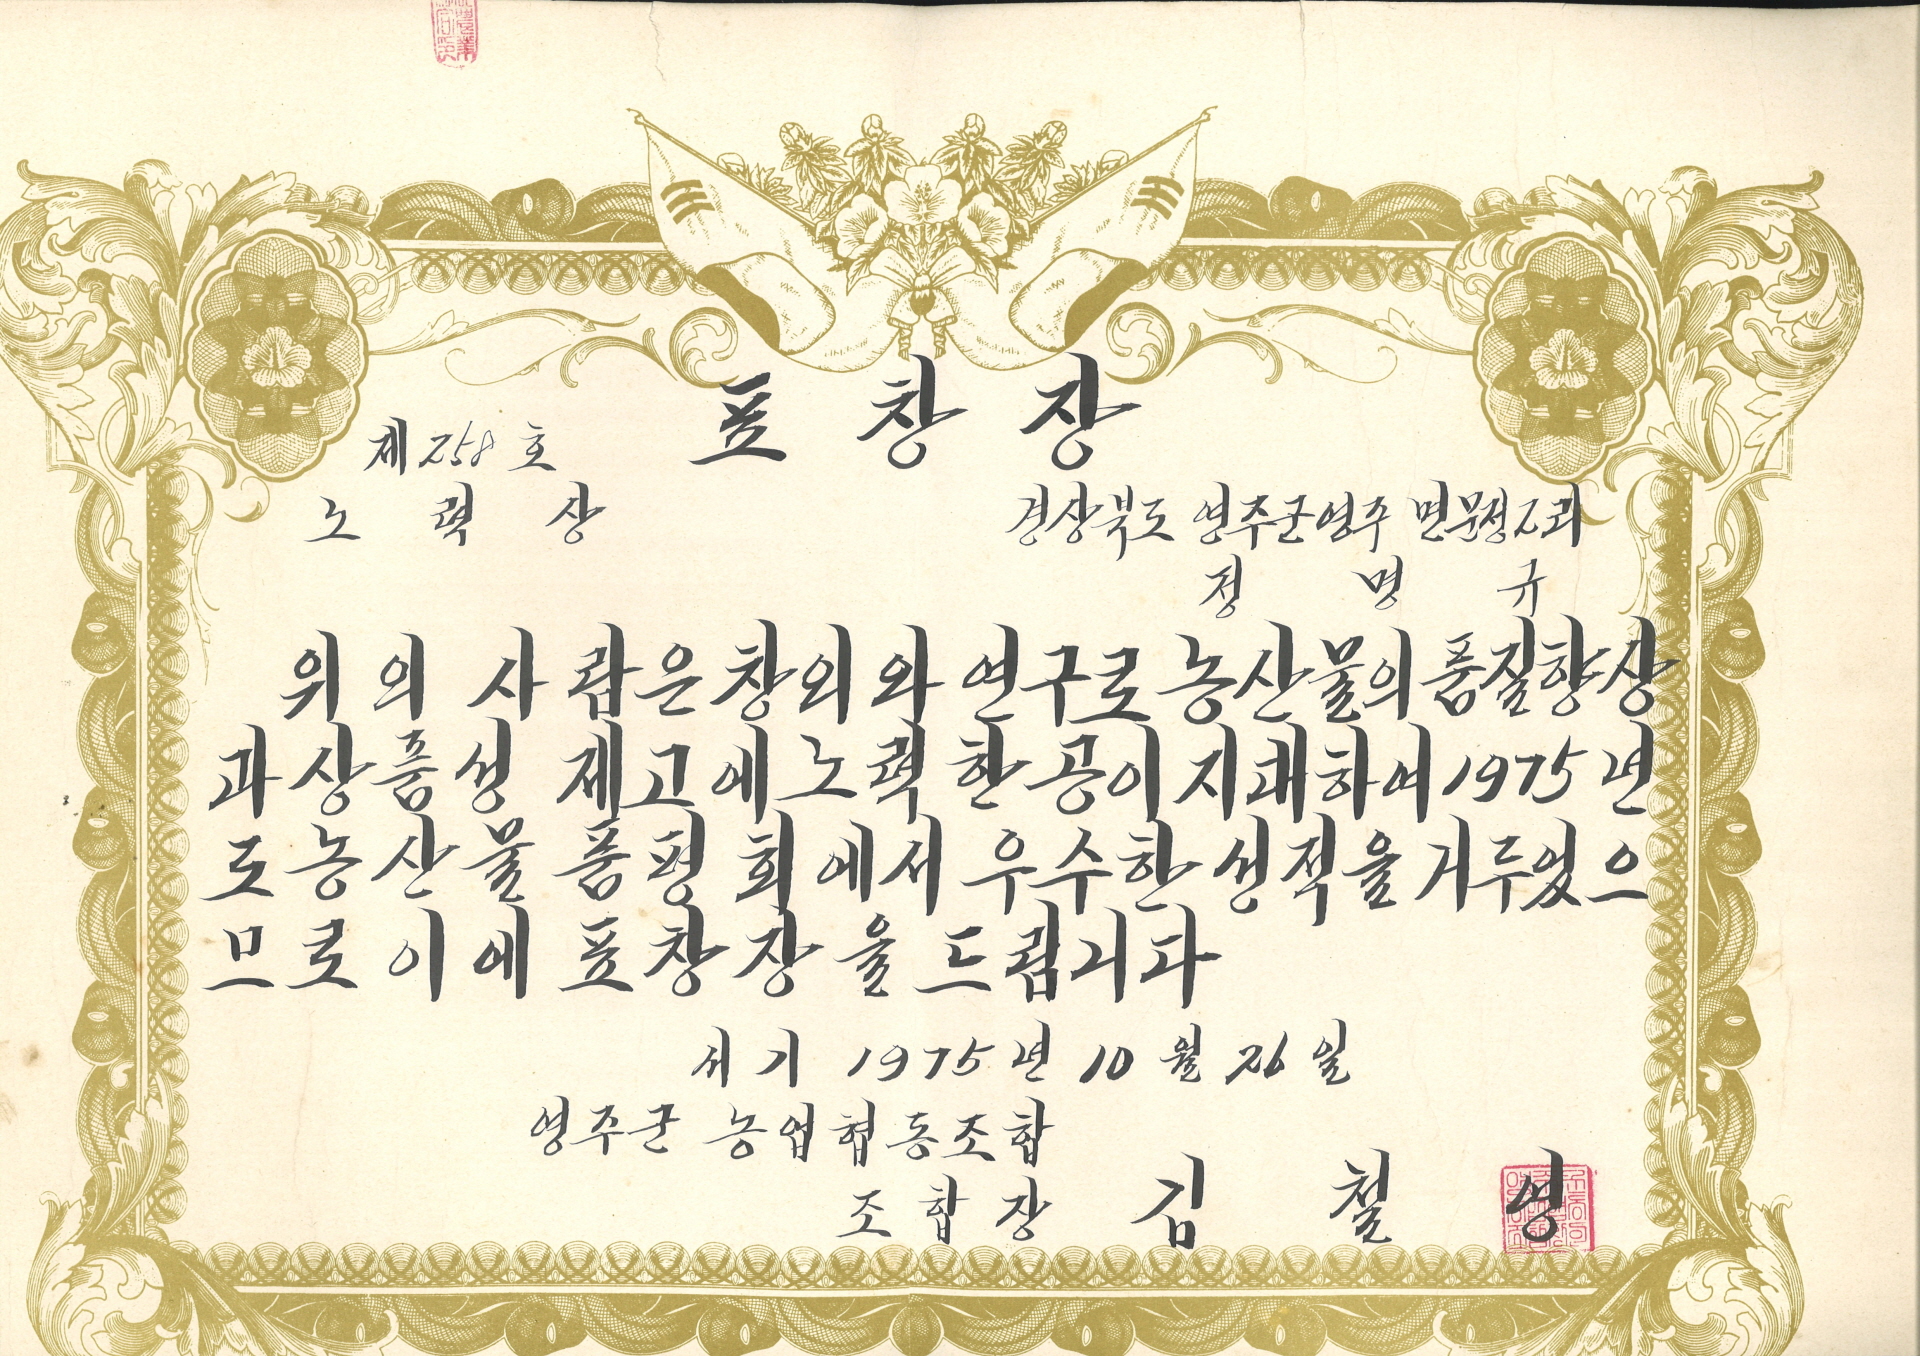 표창장
제258호
노력상
경상북도 영주군영주 면문정2리
정명규
위의 사람은창의와 연구로 농산물의 품질향상
과상품성 제고에노력 한공이지대하여 1975년
도농산물품평회에서 우수한 성적을 거두었으
므로 이에 표창장을 드립니다
서기 1975년 10월 26일
영주군 농업협동조합
조합장 김철영